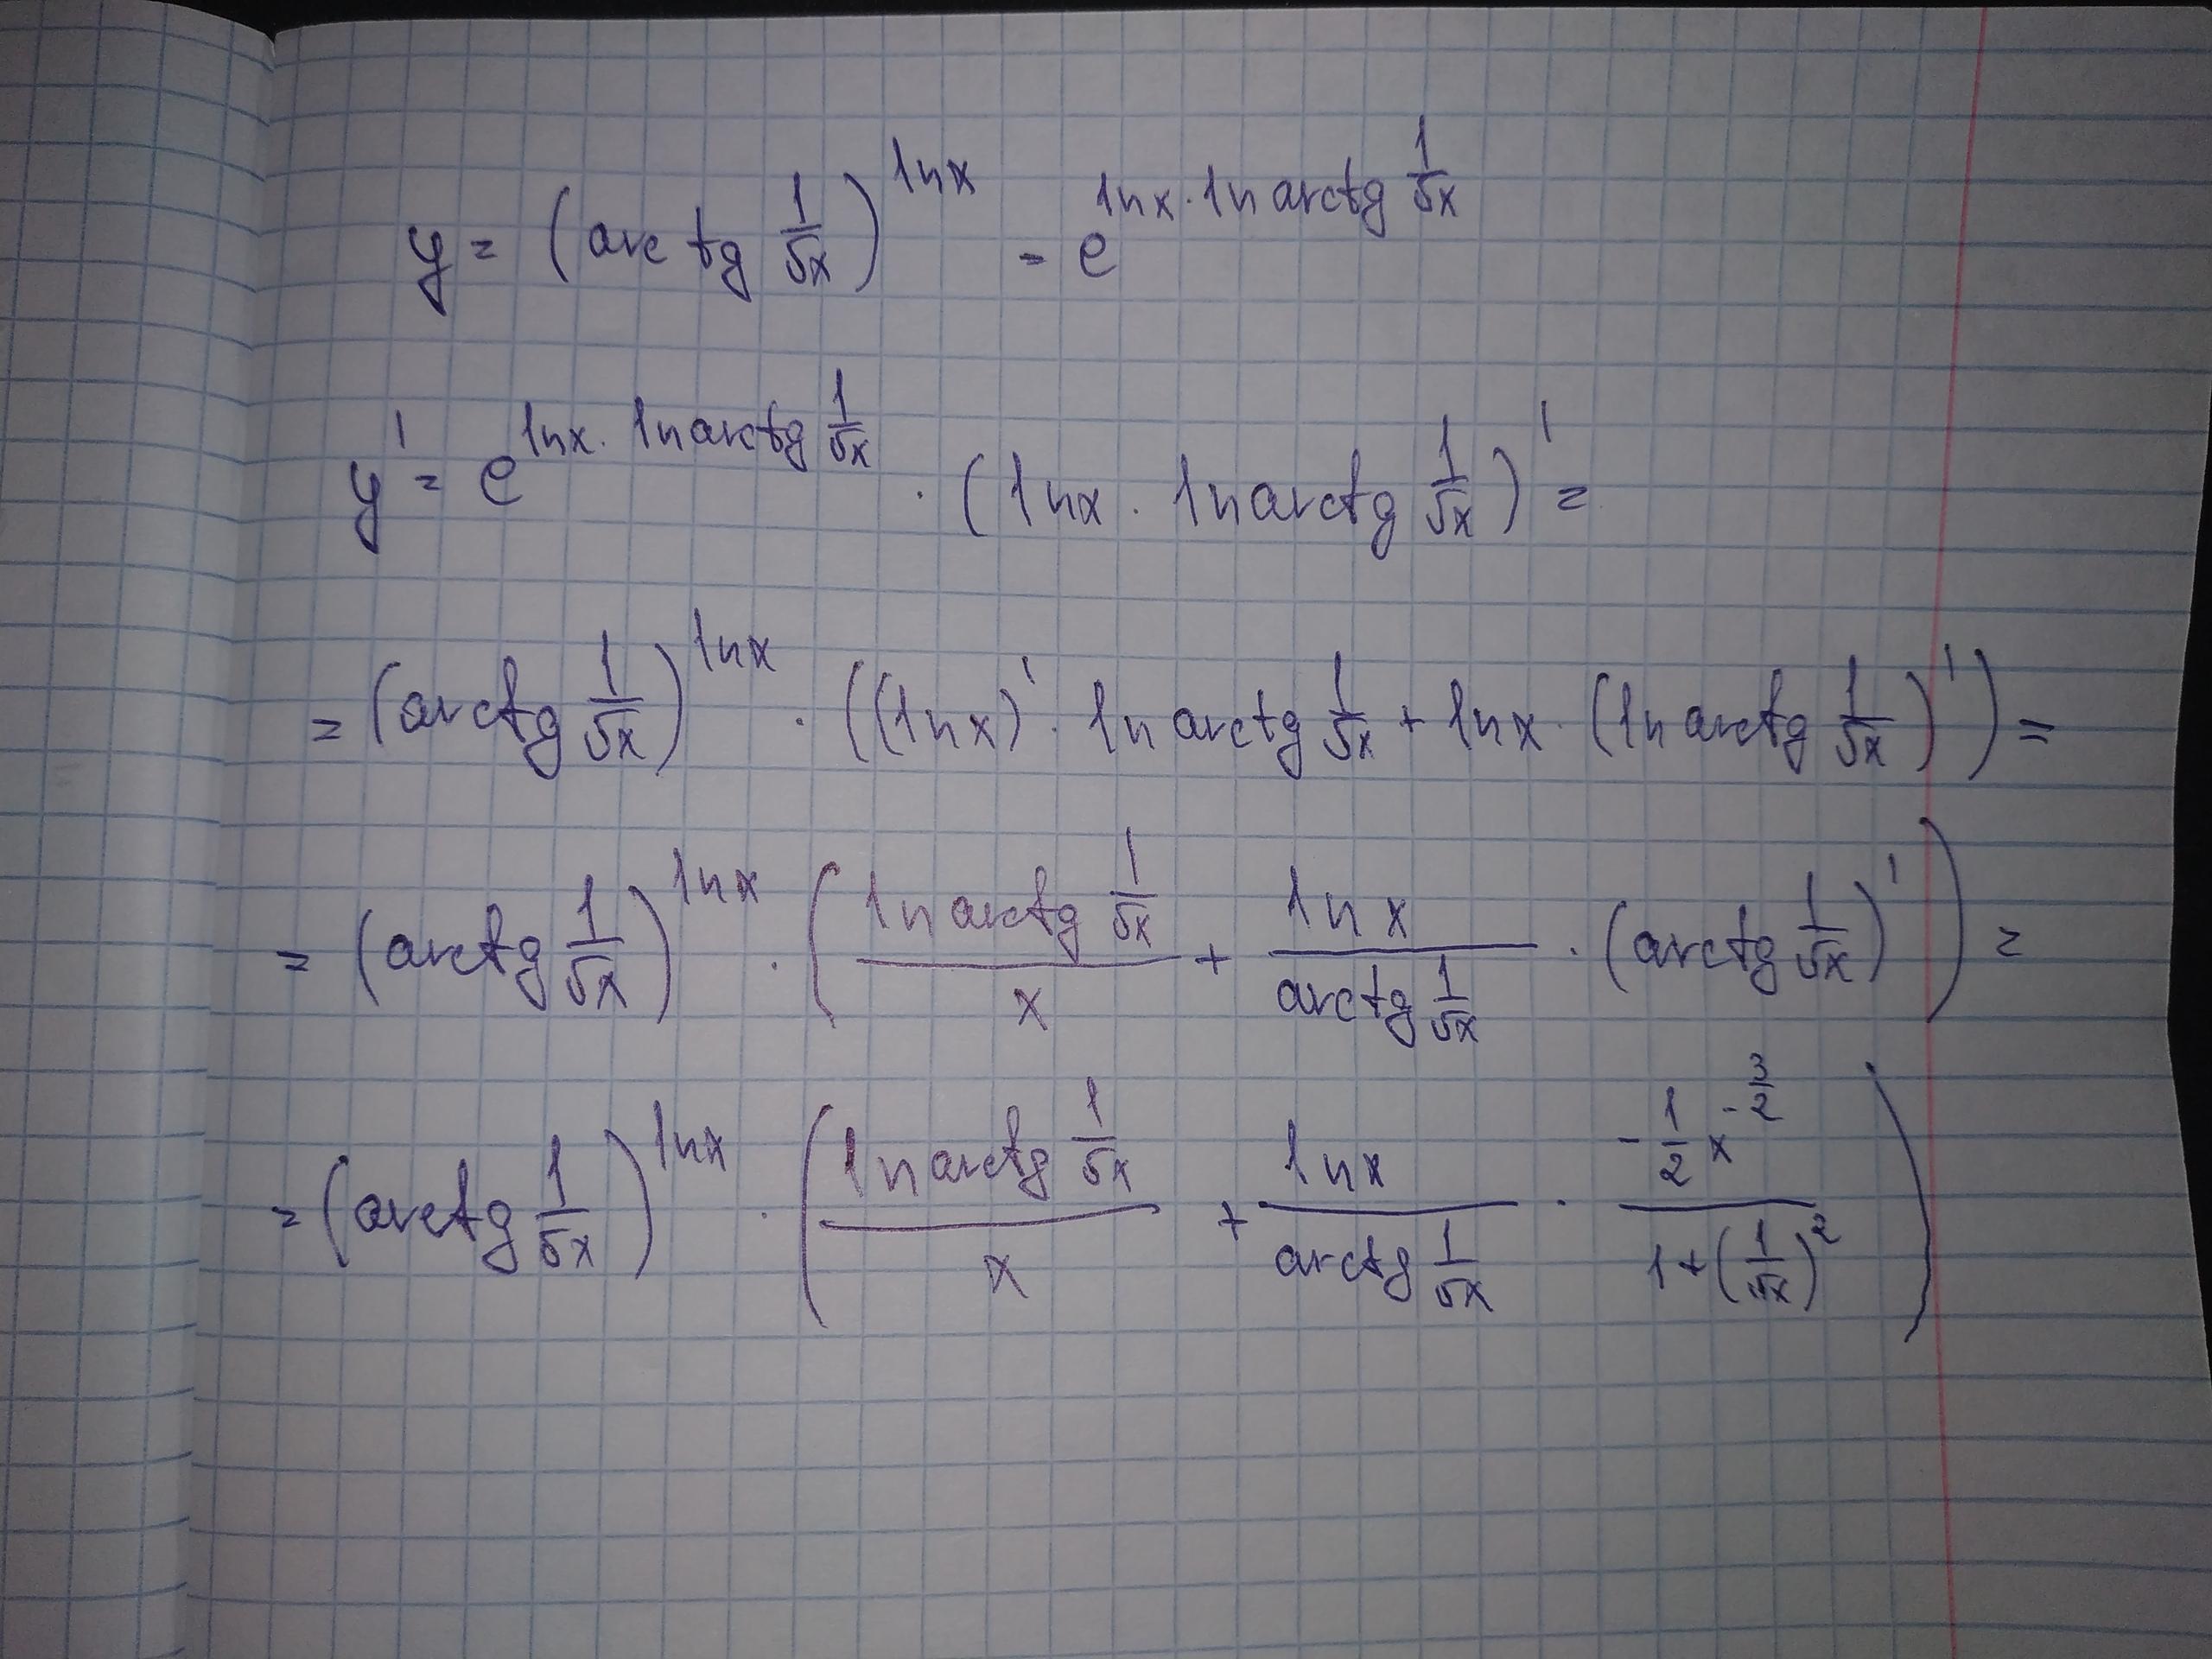 y = (arctg 1/√x)^lnx = e^(lnx · ln arctg 1/√x)
y' = e^(lnx · ln arctg 1/√x) · (lnx · ln arctg 1/√x)' =
= (arctg 1/√x)^lnx · ((lnx)' · ln arctg 1/√x + lnx · (ln arctg 1/√x)') =
= (arctg 1/√x)^lnx · ((ln arctg 1/√x)/x + (ln x)/(arctg 1/√x) · (arctg 1/√x)') =
= (arctg 1/√x)^lnx · ((ln arctg 1/√x)/x + (lnx)/(arctg 1/√x) · (-1/2 x^(-3/2))/(1+(1/√x)^2))